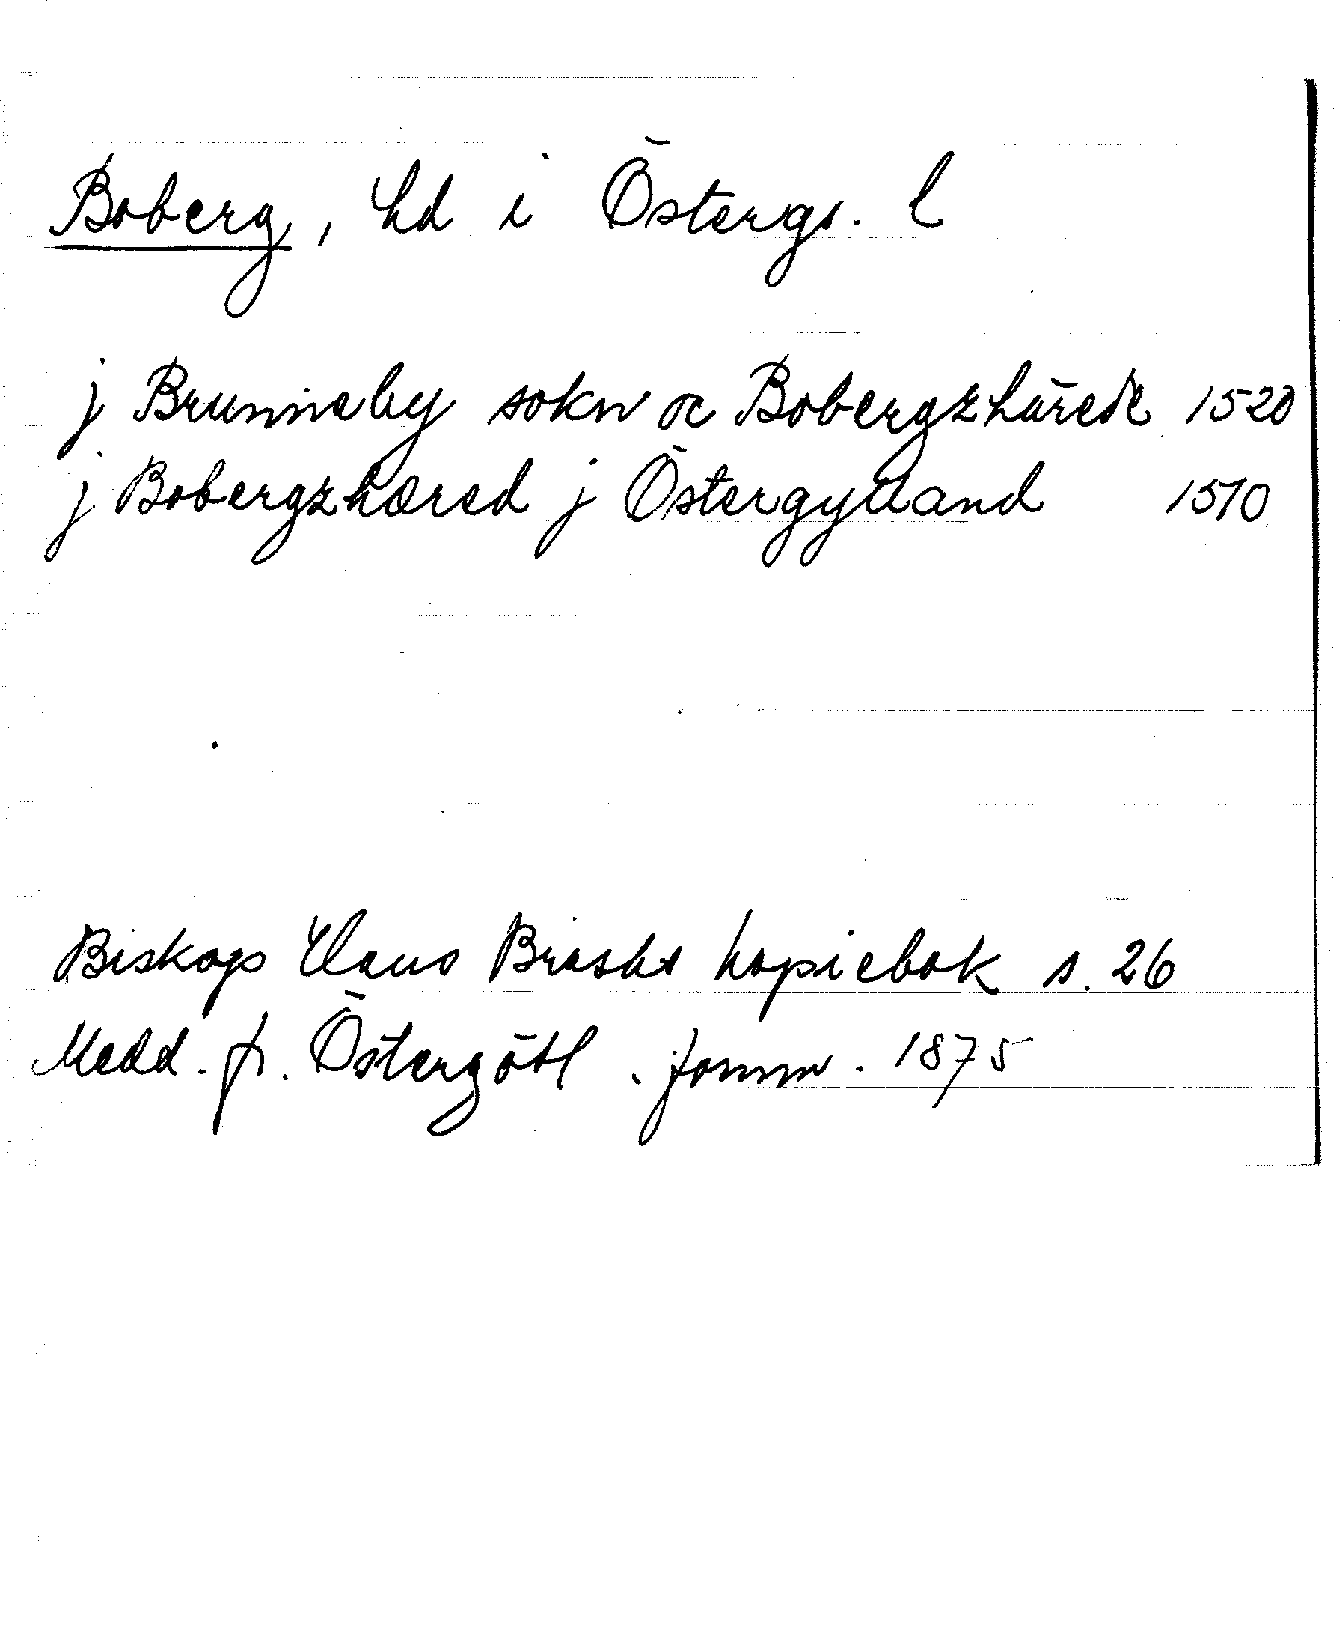 Boberg, hd i Östergs. l
j Brunneby sokn oc Bobergzhärede 1520
j Bobergzhæred j Östergytland 1510
Biskop Claus Brasks kopiebok s. 26
Medd. fr. Östergötl. fornm. 1875